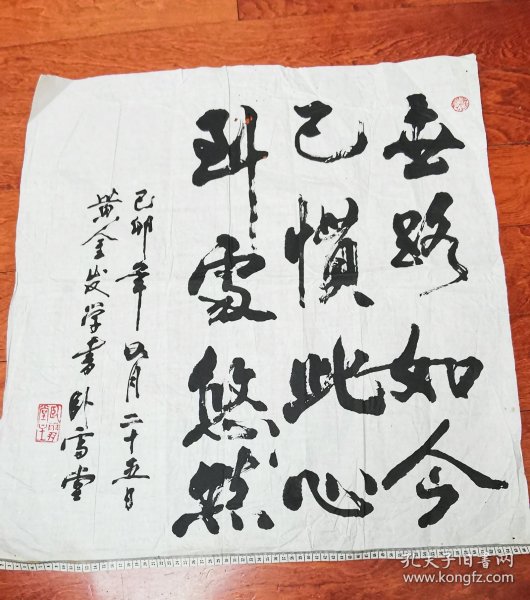 世路如今
已慣此心
到處悠然
己卯年四月二十五日
黄金发学書卧雪堂
孔夫子旧书网
www.kongfz.com